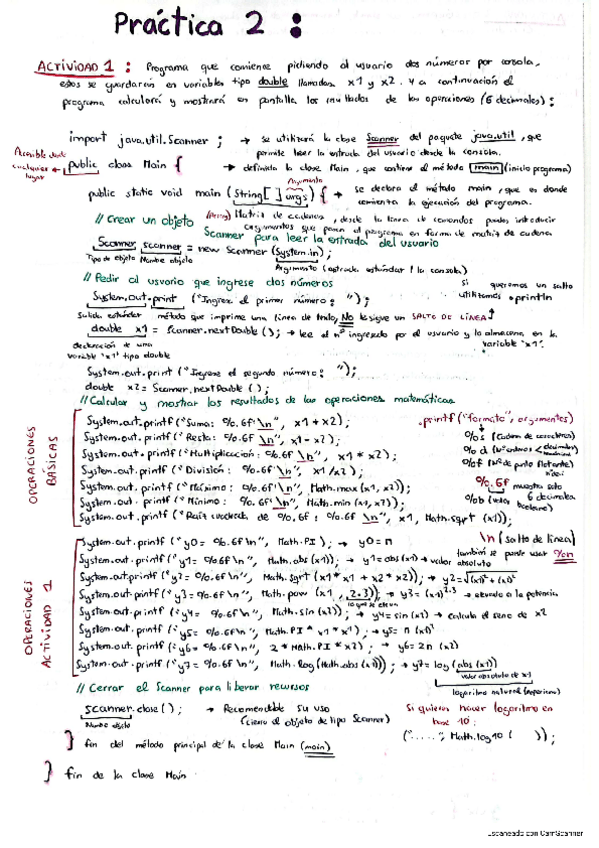 Práctica 2 :
ACTIVIDAD 1 : Programa que comience pidiendo al usuario dos números por consola,
estos se guardarán en variables tipo double llamadas x1 y x2. Y a continuación el
programa calculará y mostrará en pantalla los resultados de las operaciones (6 decimales) :
import java.util.Scanner ; → se utilizará la clase Scanner del paquete java.util, que
permite leer la entrada del usuario desde la consola.
Accesible desde cualquier lugar
public class Main { → definida la clase Main, que contiene el método main (inicio programa)
Argumento
public static void main (String[] args) { → se declara el método main, que es donde
comienza la ejecución del programa.
(Array) Matriz de cadenas, desde la línea de comandos puedes introducir
argumentos que pasan al programa en forma de matriz de cadena
// Crear un objeto Scanner para leer la entrada del usuario
Scanner scanner = new Scanner (System.in);
Tipo de objeto Nombre objeto
Argumento (entrada estándar / la consola)
// Pedir al usuario que ingrese dos números
si queremos un salto
utilizamos .println
System.out.print ("Ingrese el primer número: ");
Salida estándar método que imprime una línea de texto, NO le sigue un SALTO DE LÍNEA
double x1 = Scanner.nextDouble(); → lee el nº ingresado por el usuario y lo almacena en la
variable 'x1'.
declaración de una
variable 'x1' tipo double
System.out.print ("Ingrese el segundo número: ");
double x2 = Scanner.nextDouble();
// Calcular y mostrar los resultados de las operaciones matemáticas
OPERACIONES BÁSICAS
System.out.printf ("Suma: %.6f \n", x1 + x2);
System.out.printf ("Resta: %.6f \n", x1 - x2);
System.out.printf ("Multiplicación: %.6f \n", x1 * x2);
System.out.printf ("División: %.6f \n", x1 / x2);
System.out.printf ("Máximo: %.6f \n", Math.max(x1, x2));
System.out.printf ("Mínimo: %.6f \n", Math.min(x1, x2));
System.out.printf ("Raíz cuadrada de %.6f : %.6f \n", x1, Math.sqrt (x1));
.printf ("formato", argumentos)
%s (Cadena de caracteres)
%d (Nº enteros
%f (Nº de punto flotante)
%.6f muestra solo
6 decimales
%b (valor booleano)
\n (salto de línea)
también se puede usar %n
OPERACIONES ACTIVIDAD 1
System.out.printf ("y0= %.6f\n", Math.PI); → y0 = π
System.out.printf ("y1= %.6f\n", Math.abs(x1)); → y1 = abs(x1) → valor absoluto
System.out.printf ("y2= %.6f\n", Math.sqrt (x1*x1 + x2*x2)); → y2 = √(x1)² + (x2)²
System.out.printf ("y3= %.6f\n", Math.pow (x1, 2.3)); → y3 = (x1)^2.3 → elevado a la potencia
lo que se eleva
System.out.printf ("y4= %.6f\n", Math.sin(x2)); → y4 = sin(x2) → calcula el seno de x2
System.out.printf ("y5= %.6f\n", Math.PI * x1 * x1); → y5 = π (x1)²
System.out.printf ("y6= %.6f\n", 2 * Math.PI * x2); → y6 = 2π x2
System.out.printf ("y7= %.6f\n", Math.log(Math.abs(x1))); → y7 = log (abs (x1))
valor absoluto de x1
logaritmo natural (neperiano)
// Cerrar el Scanner para liberar recursos
scanner.close(); → Recomendable su uso
(cierra el objeto de tipo Scanner)
Nombre objeto
Si quieres hacer logaritmo en
base 10:
(".....", Math.log10 ( ));
} fin del método principal de la clase Main (main)
} fin de la clase Main
Escaneado con CamScanner